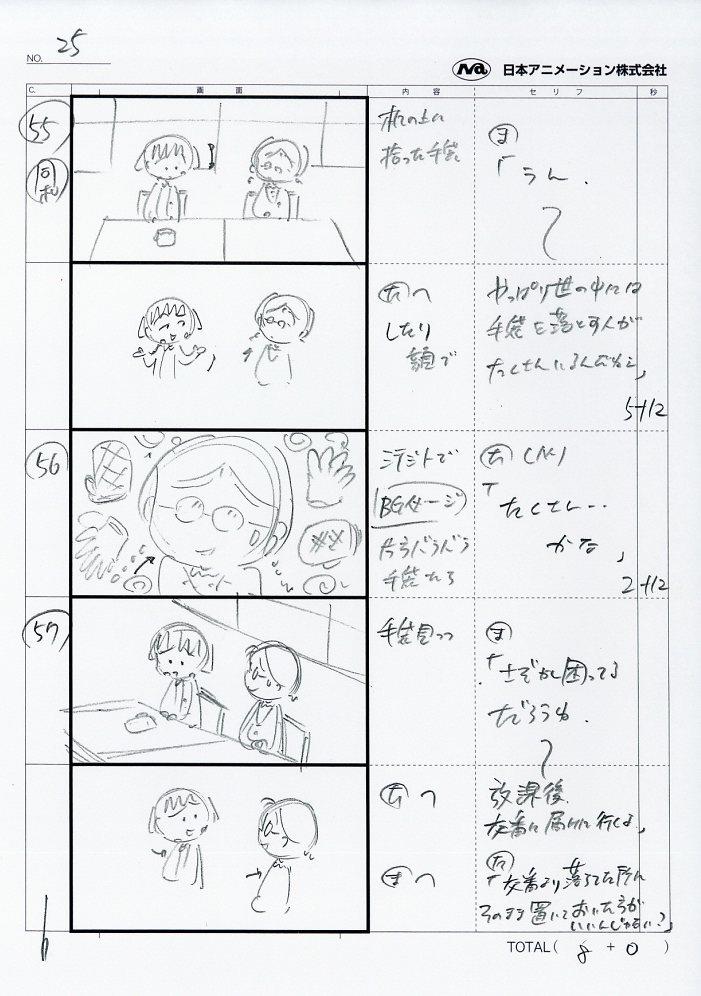 NO. 25
Na 日本アニメーション株式会社
C. 画面 内容 セリフ 秒
55
机の上に
拾った手袋
ま
「うん、
たへ
したり
顔で
やっぱり世の中には
手袋を落とす人が
たくさんいるんだねえ」
5+12
56
BGイメージ
片方バラバラ
手袋たち
た (M)
「たくさん…
かな」
2+12
57
手袋見つつ
ま
「さぞかし困ってる
だろうね、
たへ
放課後、
交番に届けに行くよ」
まへ
た
「交番より落ちてた所に
そのまま置いておいた方が
いいんじゃない?」
TOTAL( 8 + 0 )